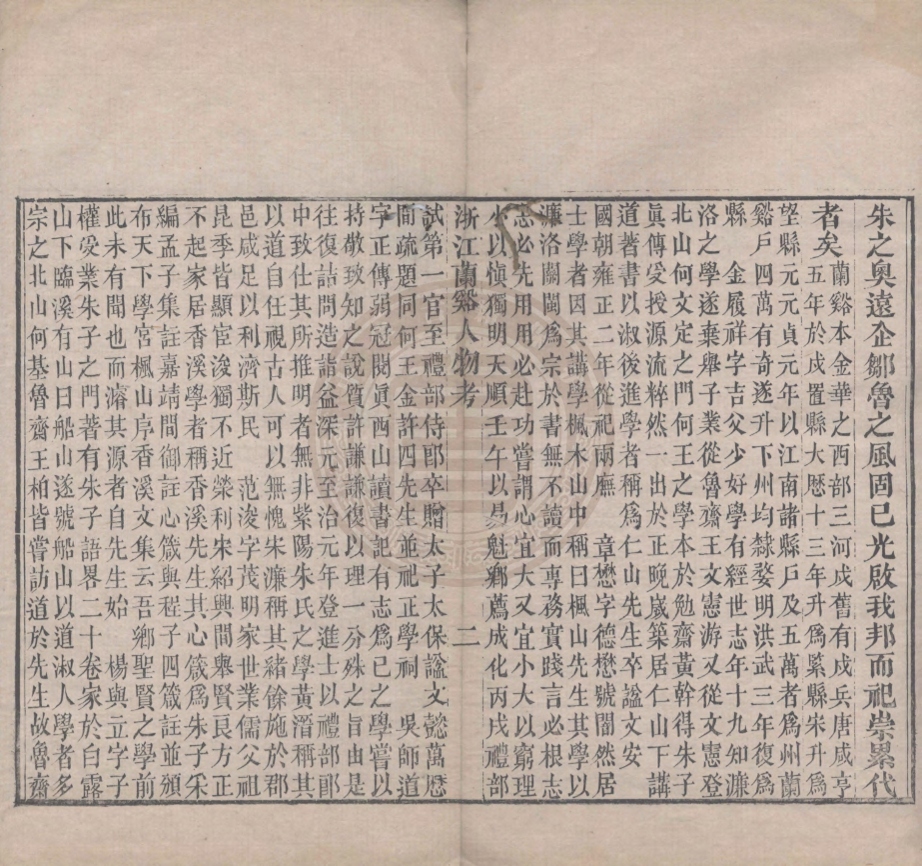 朱之奧遠企鄒魯之風固已光啟我邦而祀崇累代
者矣蘭谿本金華之西部三河戍舊有戍兵唐咸亨
五年於戍置縣大曆十三年升爲緊縣宋升爲
望縣元元貞元年以江南諸縣戶及五萬者爲州蘭
谿戶四萬有奇遂升下州均隸婺明洪武三年復爲
縣 金履祥字吉父少好學有經世志年十九知濂
洛之學遂棄舉子業從魯齋王文憲游又從文憲登
北山何文定之門何王之學本於勉齋黃榦得朱子
眞傳受授源流粹然一出於正晚歲築居仁山下講
道著書以淑後進學者稱爲仁山先生卒謚文安
國朝雍正二年從祀兩廡 章懋字德懋號闇然居
士學者因其講學楓木山中稱曰楓山先生其學以
濂洛關閩爲宗於書無不讀而專務實踐言必根志
志必先用用必赴功嘗謂心宜大又宜小大以窮理
小以愼獨明天順壬午以易魁鄉薦成化丙戌禮部
浙江蘭谿人物考 二
試第一官至禮部侍郎卒贈太子太保謚文懿萬曆
間疏題同何王金許四先生並祀正學祠 吳師道
字正傳弱冠閱眞西山讀書記有志爲已之學嘗以
持敬致知之說質許謙謙復以理一分殊之旨由是
往復詰問造詣益深元至治元年登進士以禮部郎
中致仕其所推明者無非紫陽朱氏之學黃溍稱其
以道自任視古人可以無愧朱濂稱其緒餘施於郡
邑咸足以利濟斯民 范浚字茂明家世業儒父祖
昆季皆顯宦浚獨不近榮利宋紹興間舉賢良方正
不起家居香溪學者稱香溪先生其心箴爲朱子采
編孟子集註嘉靖間御註心箴與程子四箴註並頒
布天下學宮楓山序香溪文集云吾鄉聖賢之學前
此未有聞也而濬其源者自先生始 楊與立字子
權受業朱子之門著有朱子語畧二十卷家於白露
山下臨溪有山曰船山遂號船山以道淑人學者多
宗之北山何基魯齋王柏皆嘗訪道於先生故魯齋